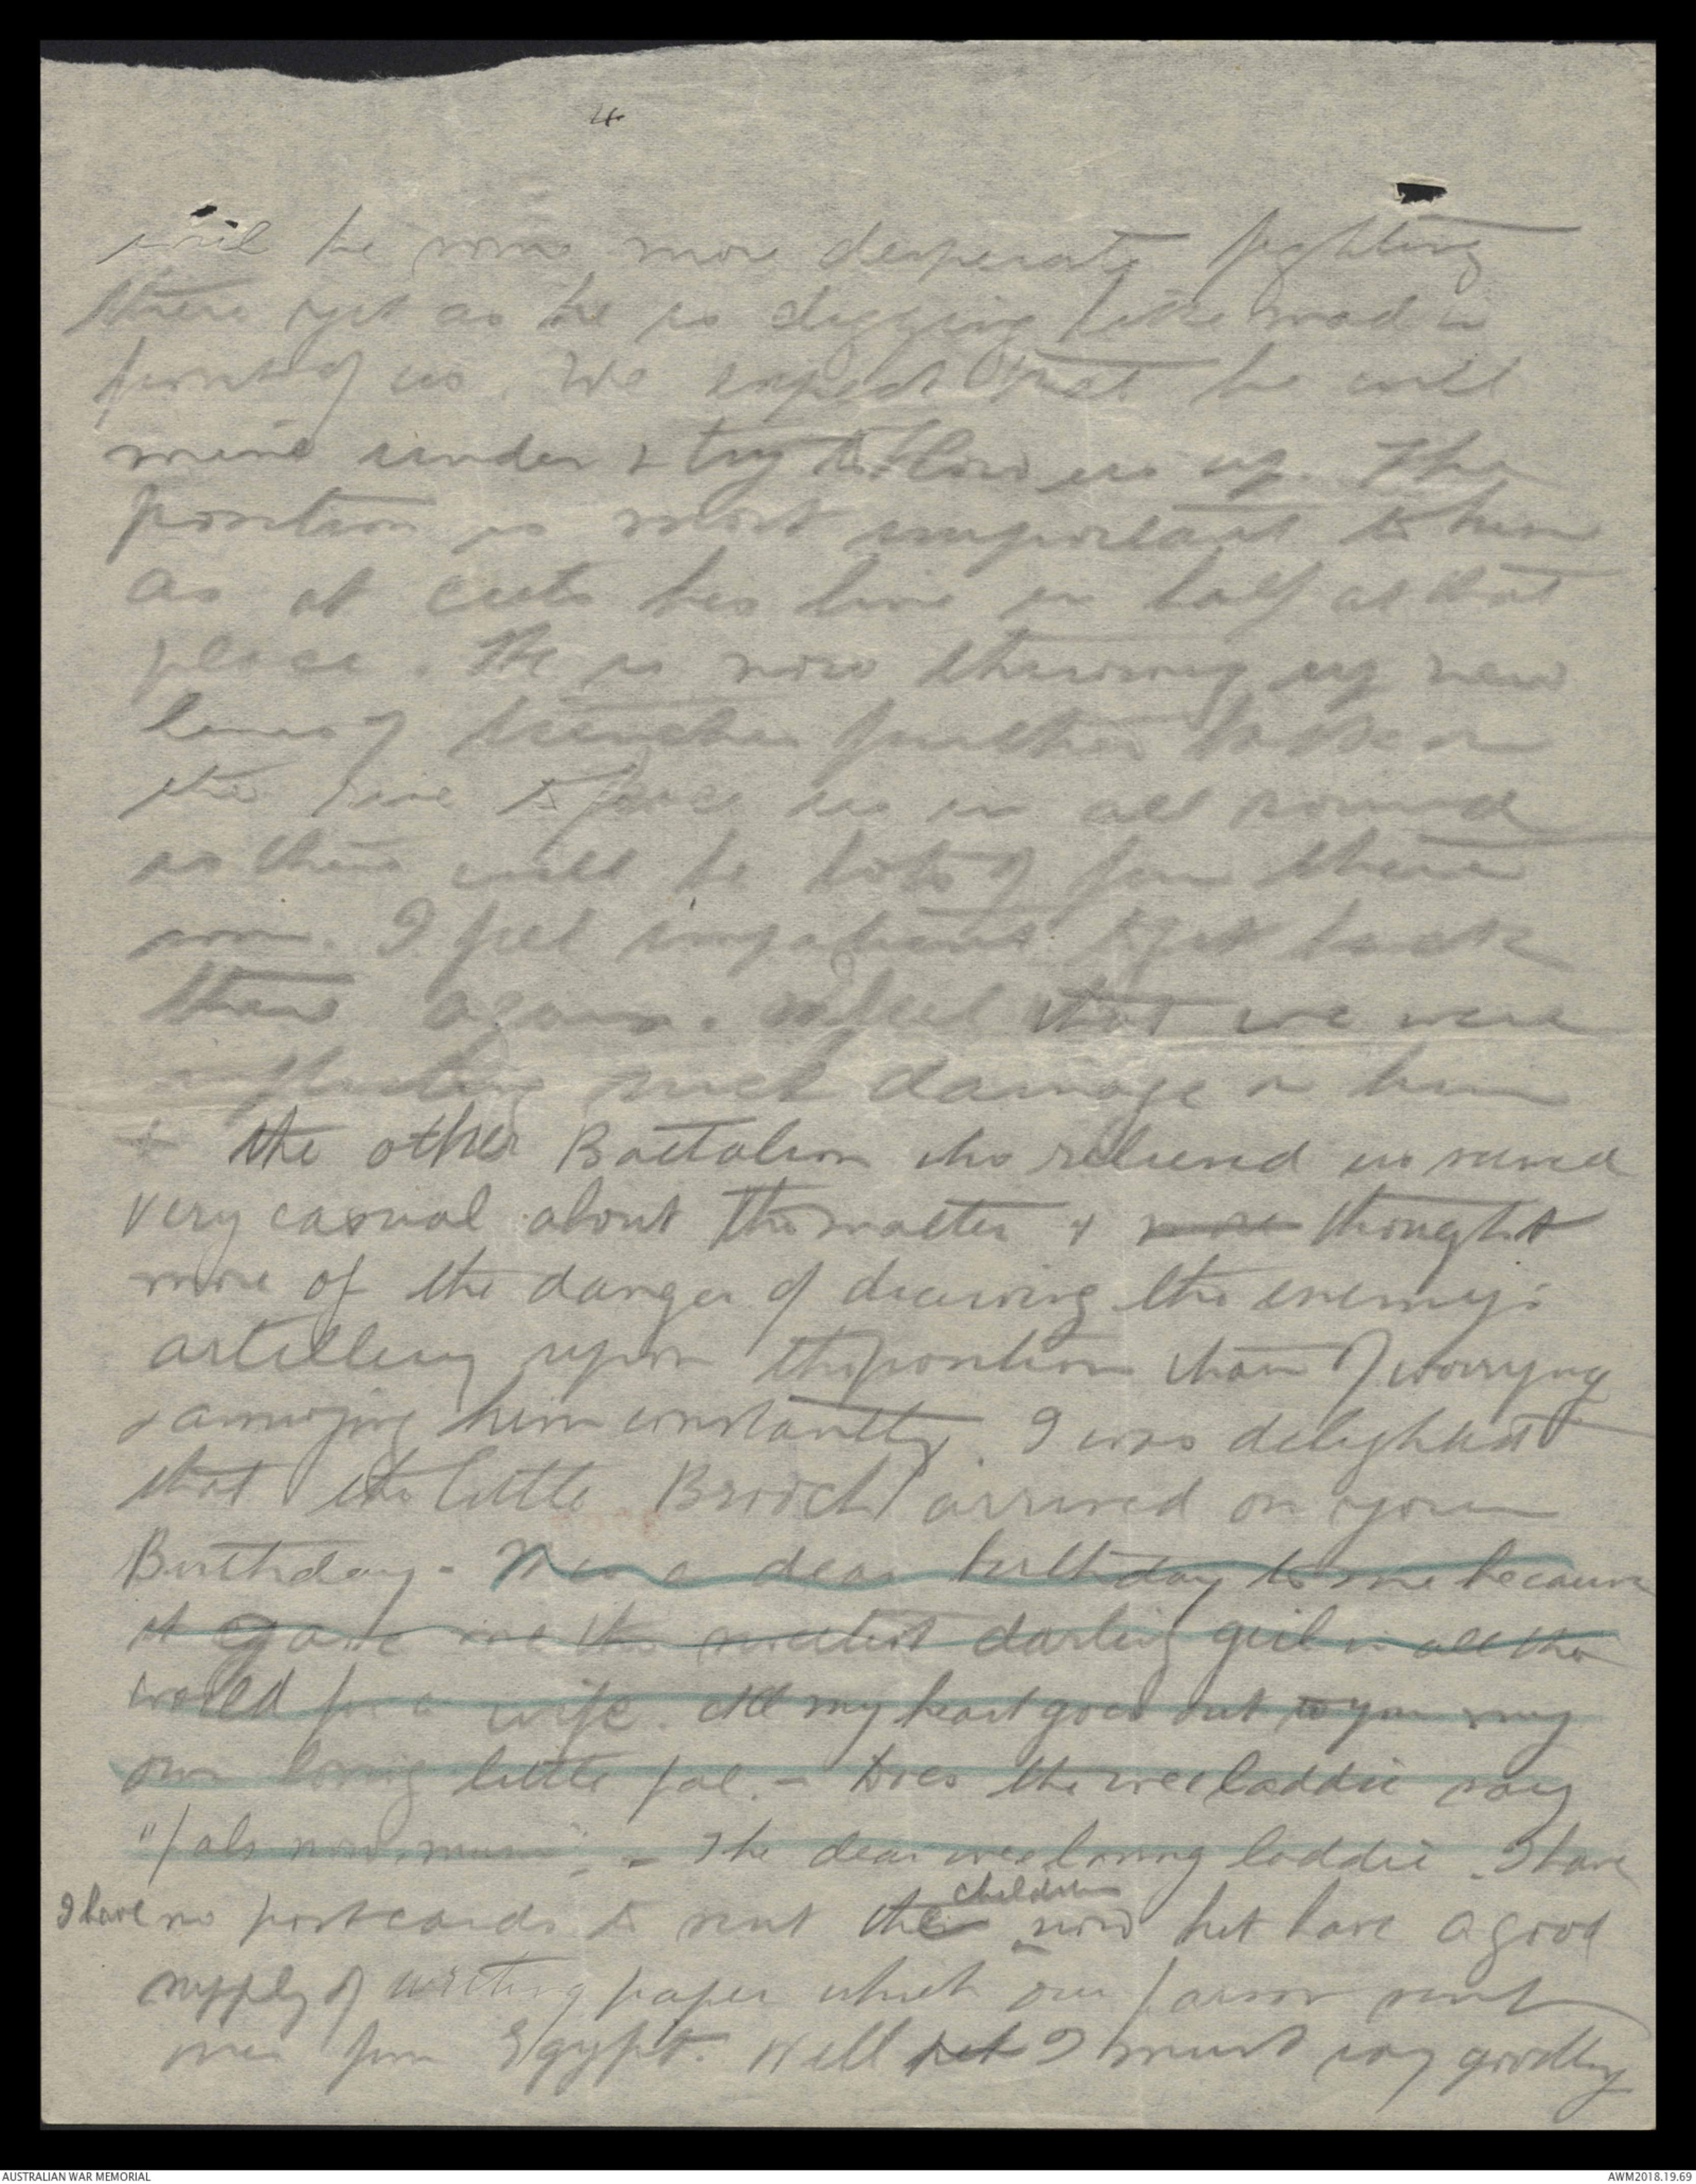 4
will be some more desperate fighting
there yet as he is digging like mad in
front of us. We expect that he will
mine under & try to blow us up. The
position is most important to him
as it cuts his line in half at that
place. He is now throwing up new
lines of trenches further back in
the rear to face us in all round
so there will be lots of fun there
soon. I feel impatient to get back
there again. feel that we were
inflicting such damage on him
& the other Battalion who relieved us seemed
very casual about the matter & more thought
more of the danger of drawing the enemy's
artillery upon the position than of worrying
& annoying him constantly. I was delighted
that the little Brooch arrived on your
Birthday - a dear birthday to me because
it gave me the sweetest darling girl in all the
world for a wife. All my heart goes out to you my
own loving little pal. - Does the wee laddie say
"Pals now, mum". - The dear wee loving laddie. I have
children
I have no postcards to send the now but have a good
supply of writing paper which our parson sent
over from Egypt. Well pet I must say goodbye
AUSTRALIAN WAR MEMORIAL
AWM2018.19.69